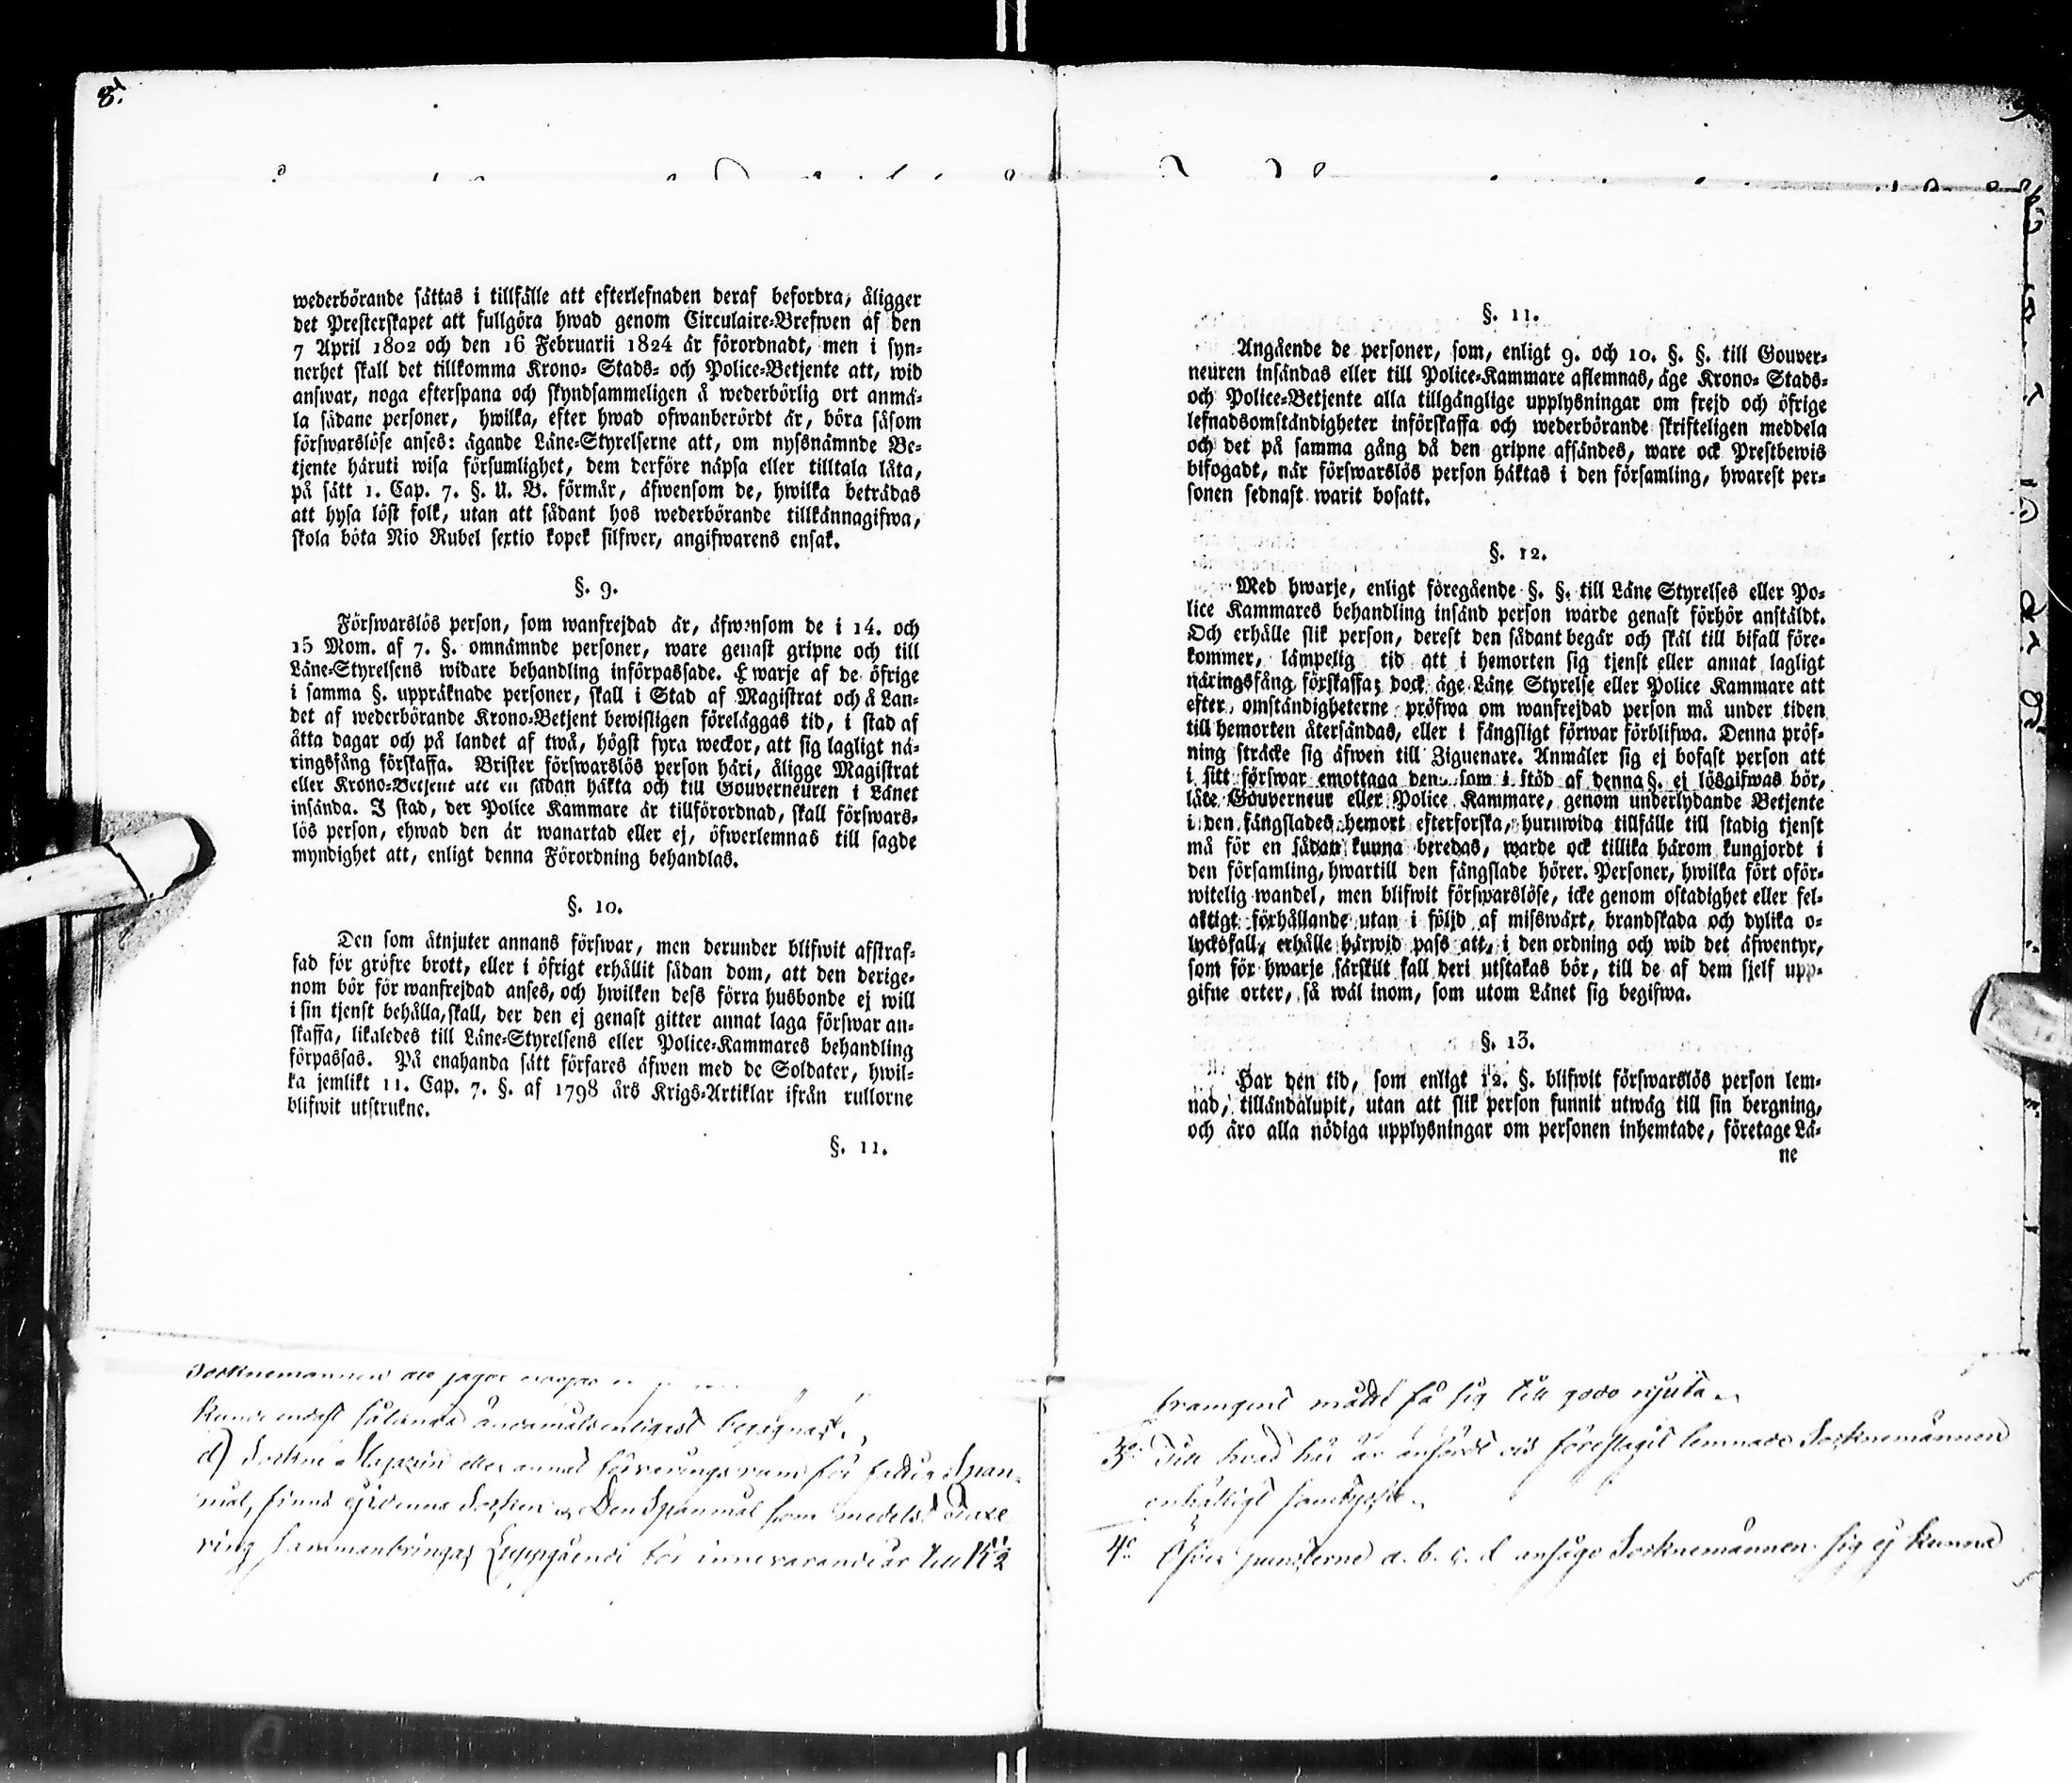 8.
wederbörande sättas i tillfälle att efterlefnaden deraf befordra, åligger
det Presterskapet att fullgöra hwad genom Circulaire-Brefwen af den
7 April 1802 och den 16 Februarii 1824 är förordnadt, men i syn-
nerhet skall det tillkomma Krono- Stads- och Police-Betjente att, wid
answar, noga efterspana och skyndsammeligen å wederbörlig ort anmä-
la sådane personer, hwilka, efter hwad ofwanberördt är, böra såsom
förswarslöse anses: ägande Läne-Styrelserne att, om nyssnämnde Be-
tjente häruti wisa försumlighet, dem derföre näpsa eller tilltala låta,
på sätt 1. Cap. 7. §. U. B. förmår, äfwensom de, hwilka beträdas
att hysa löst folk, utan att sådant hos wederbörande tillkännagifwa,
skola böta Nio Rubel sextio kopek silfwer, angifwarens ensak.
§. 9.
Förswarslös person, som wanfrejdad är, äfwensom de i 14. och
15 Mom. af 7. §. omnämnde personer, ware genast gripne och till
Läne-Styrelsens widare behandling införpassade. Hwarje af de öfrige
i samma §. uppräknade personer, skall i Stad af Magistrat och å Lan-
det af wederbörande Krono-Betjent bewisligen föreläggas tid, i stad af
åtta dagar och på landet af twå, högst fyra weckor, att sig lagligt nä-
ringsfång förskaffa. Brister förswarslös person häri, åligge Magistrat
eller Krono-Betjent att en sådan häkta och till Gouverneuren i Länet
insända. I stad, der Police Kammare är tillförordnad, skall förswars-
lös person, ehwad den är wanartad eller ej, öfwerlemnas till sagde
myndighet att, enligt denna Förordning behandlas.
§. 10.
Den som åtnjuter annans förswar, men derunder blifwit afstraf-
fad för gröfre brott, eller i öfrigt erhållit sådan dom, att den derige-
nom bör för wanfrejdad anses, och hwilken dess förra husbonde ej will
i sin tjenst behålla, skall, der den ej genast gitter annat laga förswar an-
skaffa, likaledes till Läne-Styrelsens eller Police-Kammares behandling
förpassas. På enahanda sätt förfares äfwen med de Soldater, hwil-
ka jemlikt 11. Cap. 7. §. af 1798 års Krigs-Artiklar ifrån rullorne
blifwit utstrukne.
§. 11.
Socknemannen
kunde endast sålunda ändamålsenligast begagnas.
d) Sockne Magazin eller annat förvaringsrum för Span-
mål, finns ej i denna Socken. Den Spanmål som medelst Taxe
ring sammanbringas, uppgående för innevarande år till 15½
§. 11.
Angående de personer, som, enligt 9. och 10. §. §. till Gouver-
neuren insändas eller till Police-Kammare aflemnas, äge Krono- Stads-
och Police-Betjente alla tillgänglige upplysningar om frejd och öfrige
lefnadsomständigheter införskaffa och wederbörande skrifteligen meddela
och det på samma gång då den gripne afsändes, ware ock Prestbewis
bifogadt, när förswarslös person häktas i den församling, hwarest per-
sonen sednast warit bosatt.
§. 12.
Med hwarje, enligt föregående §. §. till Läne Styrelses eller Po-
lice Kammares behandling insänd person warde genast förhör anstäldt.
Och erhålle slik person, derest den sådant begär och skäl till bifall före-
kommer, lämpelig tid att i hemorten sig tjenst eller annat lagligt
näringsfång förskaffa; dock äge Läne Styrelse eller Police Kammare att
efter omständigheterne pröfwa om wanfrejdad person må under tiden
till hemorten återsändas, eller i fängsligt förwar förblifwa. Denna pröf-
ning sträcke sig äfwen till Ziguenare. Anmäler sig ej bofast person att
i sitt förswar emottaga den som i stöd af denna §. ej lösgifwas bör,
låte Gouverneur eller Police Kammare, genom underlydande Betjente
i den fängslades hemort efterforska, huruwida tillfälle till stadig tjenst
må för en sådan kunna beredas, warde ock tillika härom kungjordt i
den församling, hwartill den fängslade hörer. Personer, hwilka fört oför-
witelig wandel, men blifwit förswarslöse, icke genom ostadighet eller fel-
aktigt förhållande utan i följd af misswäxt, brandskada och dylika o-
lycksfall, erhålle härwid pass att, i den ordning och wid det äfwentyr,
som för hwarje särskilt fall deri utstakas bör, till de af dem sjelf upp-
gifne orter, så wäl inom, som utom Länet sig begifwa.
§. 13.
Har den tid, som enligt 12. §. blifwit förswarslös person lem-
nad, tilländalupit, utan att slik person funnit utwäg till sin bergning,
och äro alla nödiga upplysningar om personen inhemtade, företage Lä-
ne
framgent måtte få sig till godo njuta.
3o Till hvad här är anfördt och föreslagit lemnade Socknemännen
enhälligt samtycke.
4o Öfver puncterne a. b. c. d ansågo Socknemännen sig ej kunna